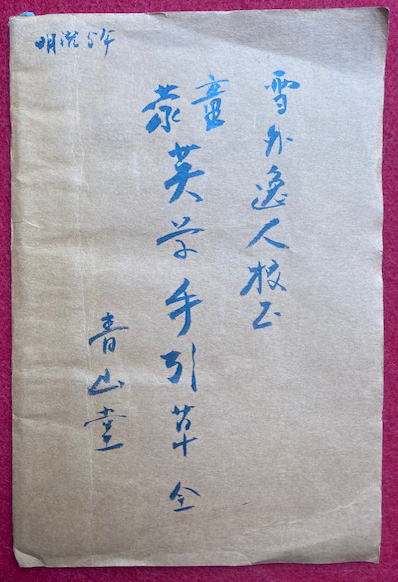 明治5年
雪外逸人校正
童蒙英学手引草 全
青山堂